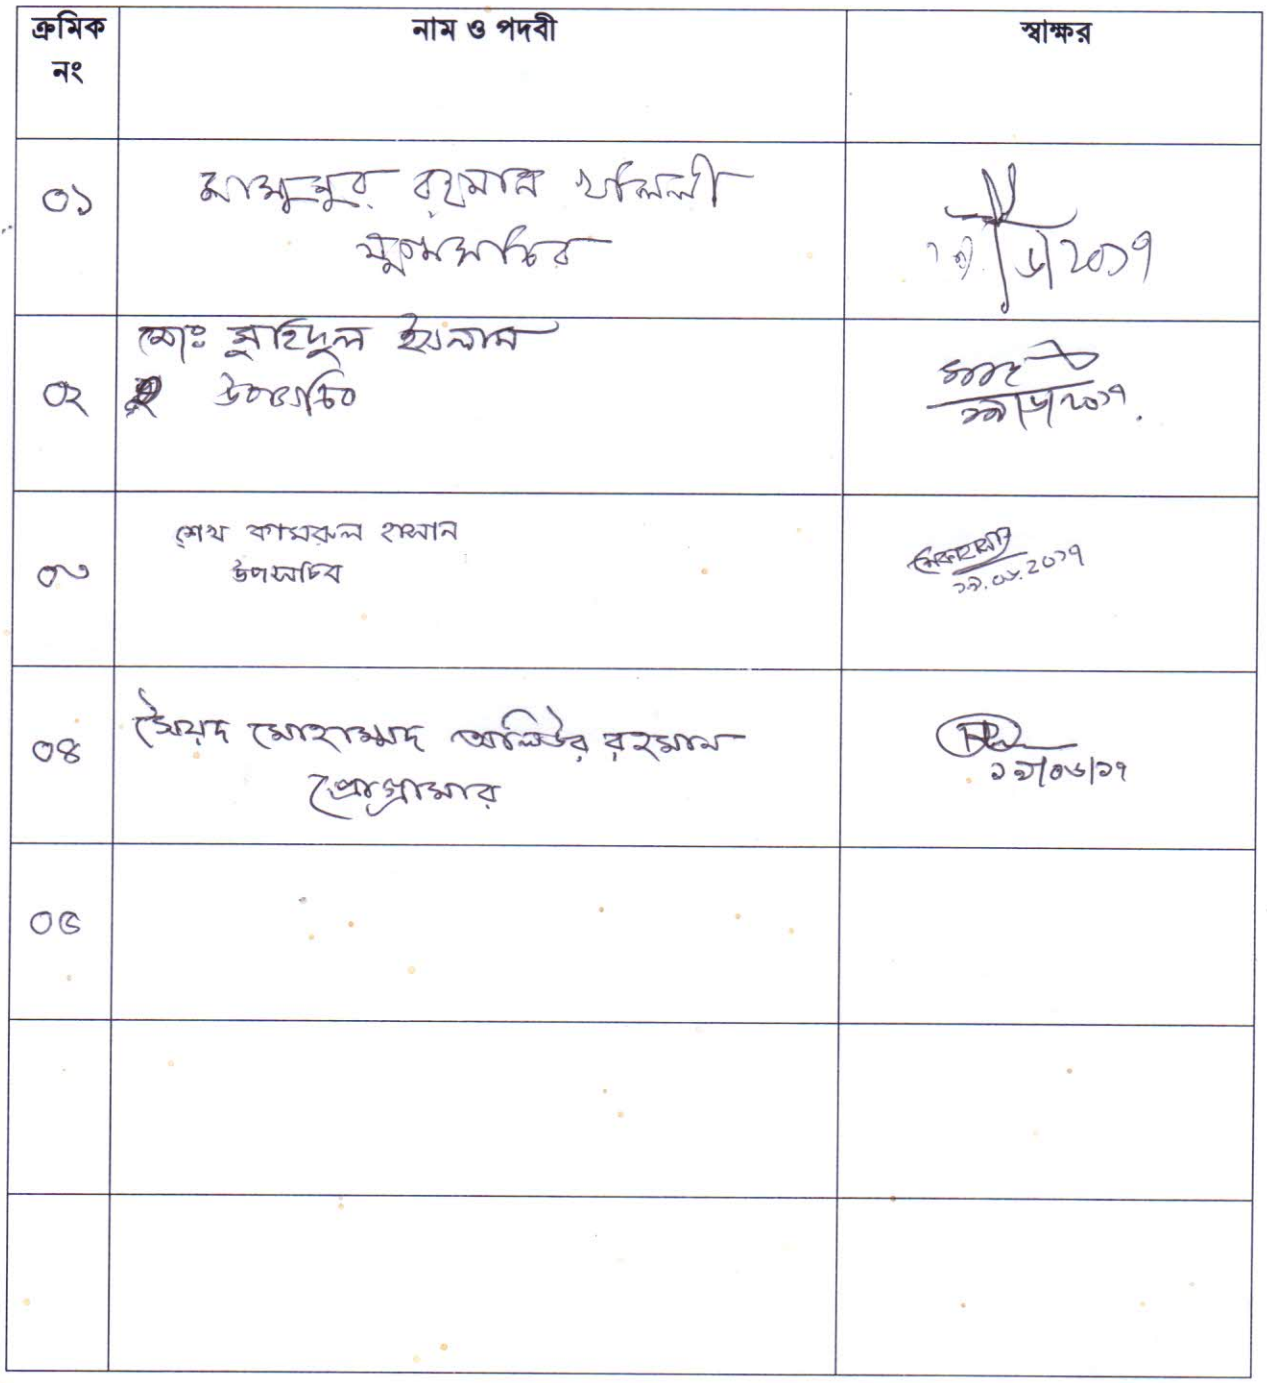 ক্রমিক নং
নাম ও পদবী
স্বাক্ষর
০১
রহমান খলিলী
যুগ্মসচিব
৬/২০১৭
০২
মোঃ মুহিদুল ইসলাম
উপসচিব
১৯/৬/২০১৭
০৩
শেখ কামরুল হাসান
উপসচিব
১৯.০৬.২০১৭
০৪
সৈয়দ মোহাম্মদ অলিউর রহমান
প্রোগ্রামার
১৯/০৬/১৭
০৫